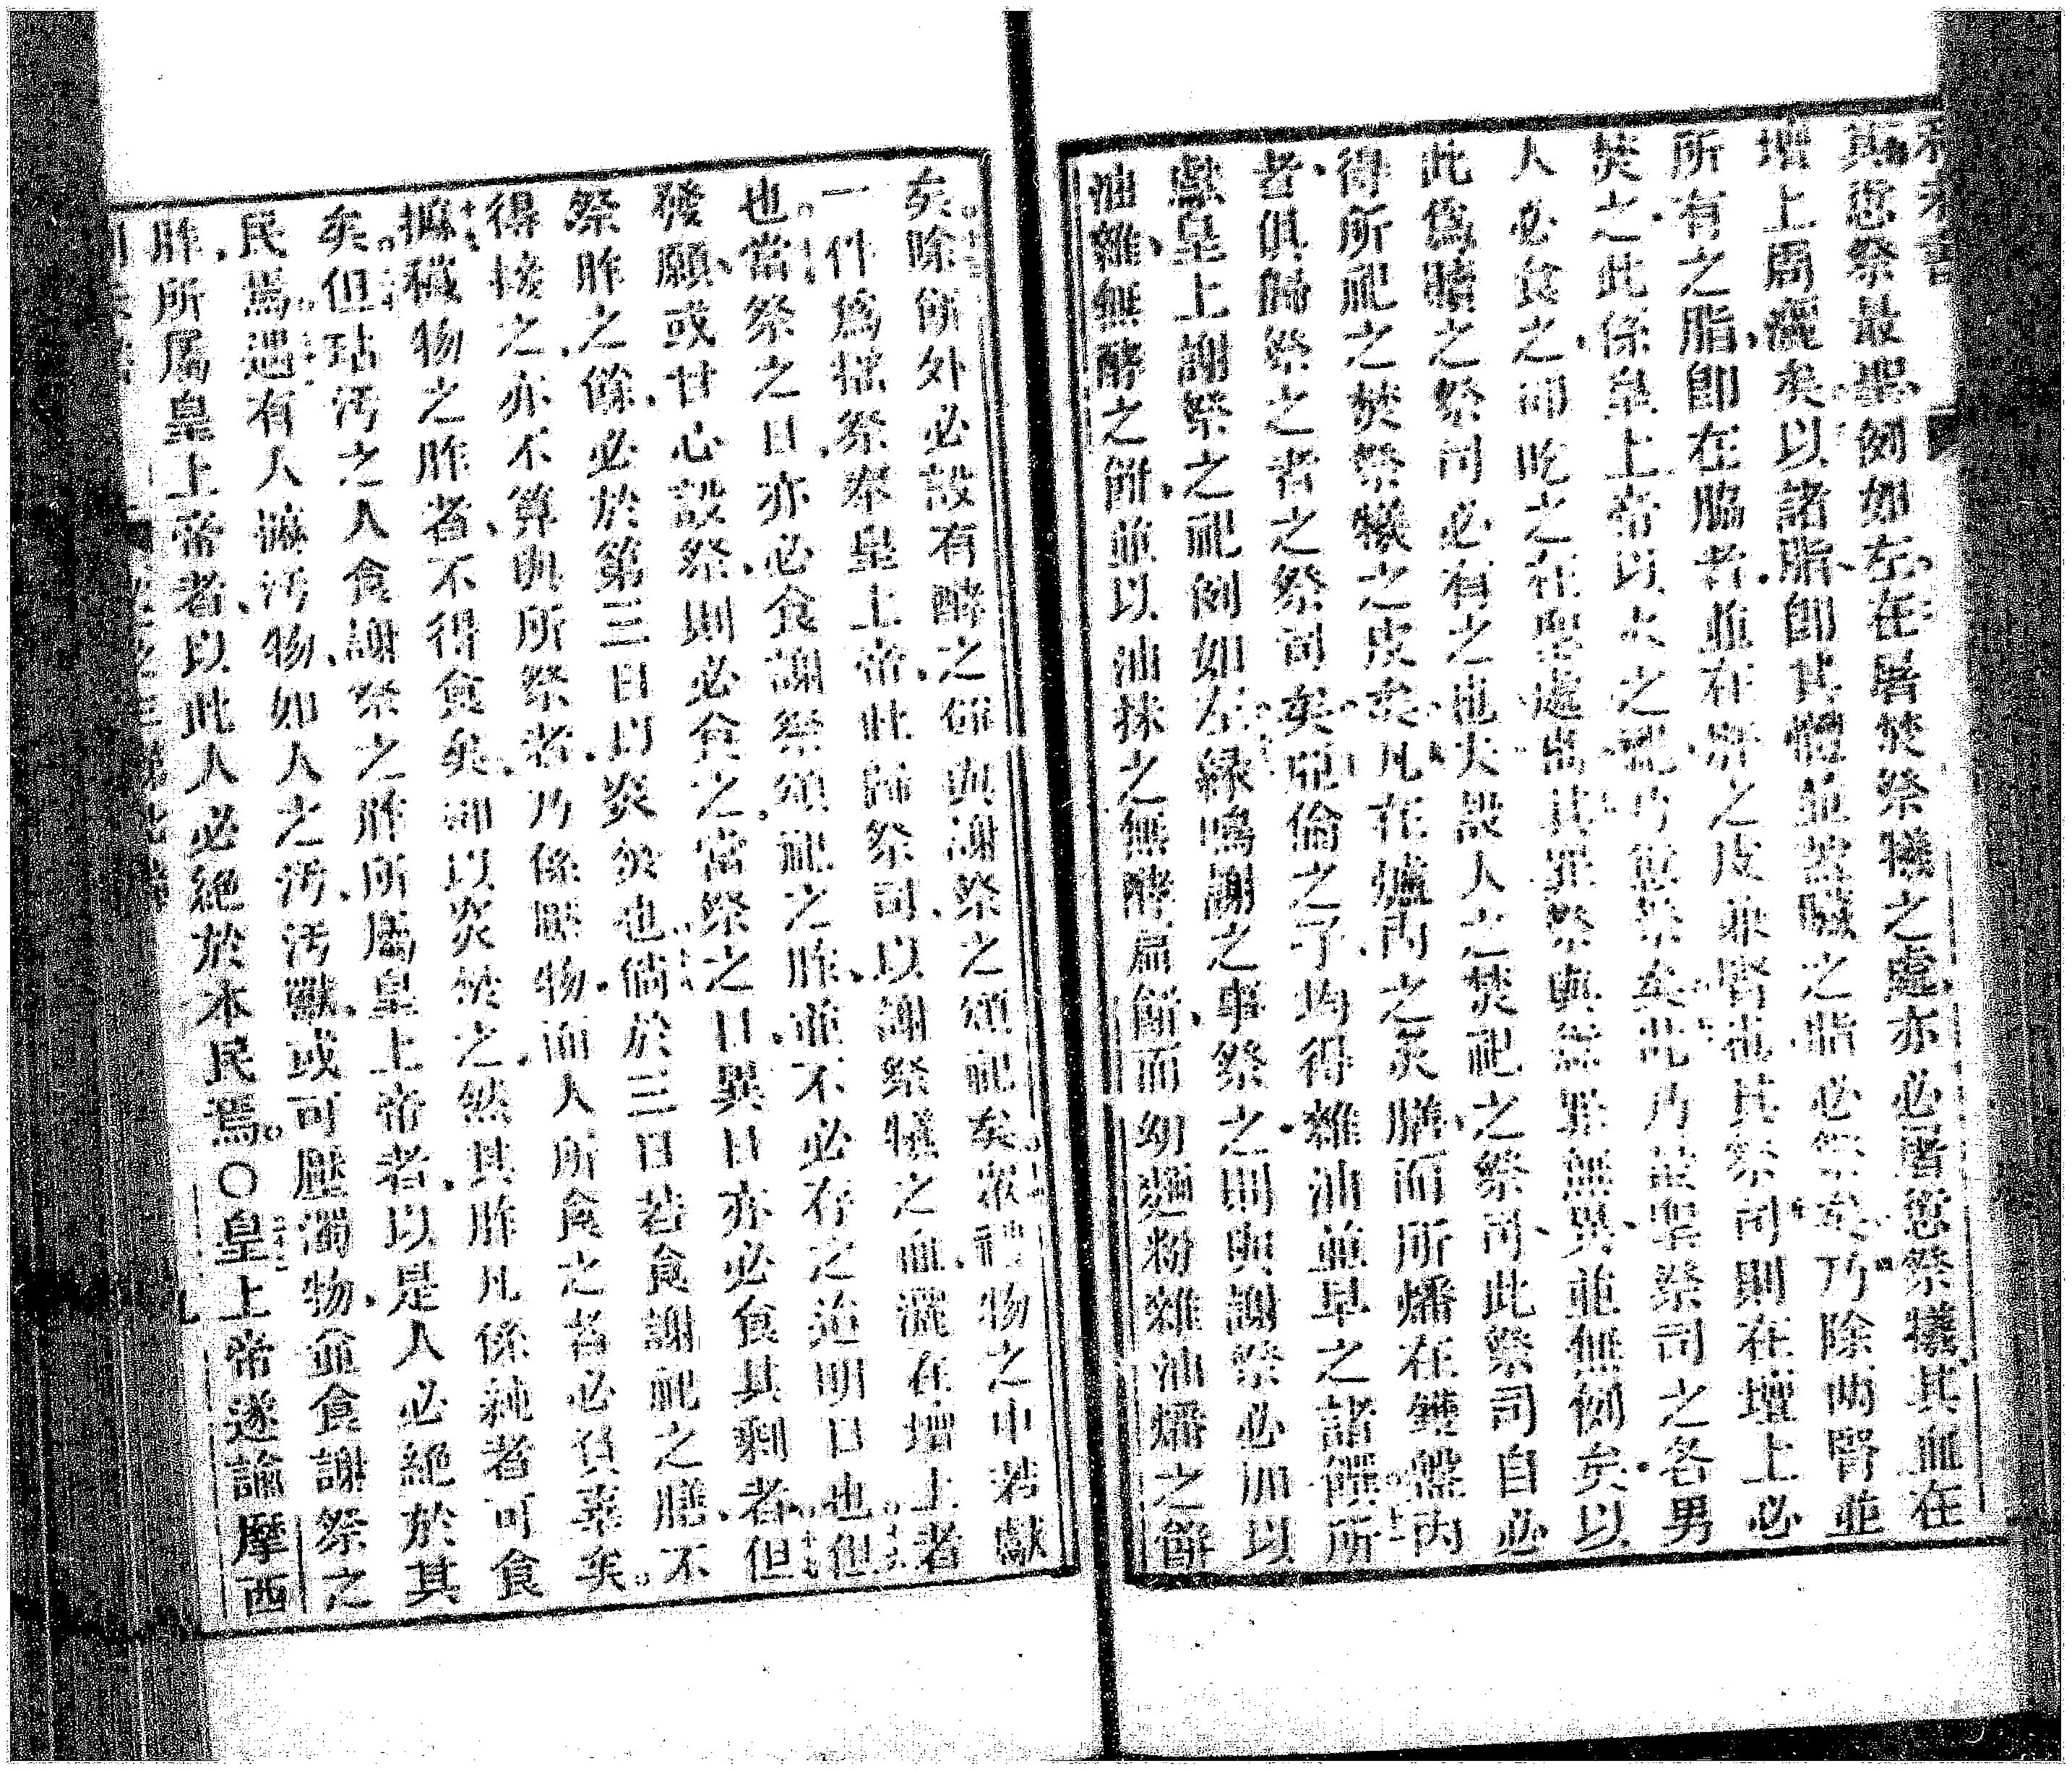 愆祭最聖例如左在屠焚祭犧之處亦必屠愆祭犧其血在
壇上周灑矣以諸脂卽其體並蓋臟之脂必祭矣乃除兩腎並
所有之脂卽在脇者並在肝之皮兼腎也其祭司則在壇上必
焚之此係皇上帝以火之祀乃愆祭矣此乃最聖祭司之各男
人必食之卽吃之在聖處也其罪祭與愆罪無異並無例矣以
此爲贖之祭司必有之也夫設人之焚祀之祭司此祭司自必
得所祀之焚祭犧之皮矣凡在爐內之炙膳而所燔在鑊盤內
者俱歸祭之者之祭司矣亞倫之子均得雜油並旱之諸饌所
獻皇上謝祭之祀例如左緣鳴謝之事祭之則與謝祭必加以
油雜無酵之餅並以油抹之無酵扁餅而幼麵粉雜油燔之餅
矣除餅外必設有酵之餅與謝祭之頌祀矣眾禮物之中若獻
一件爲搖祭奉皇上帝此歸祭司以謝祭犧之血灑在壇上者
也當祭之日亦必食謝祭頌祀之胙並不必存之迨明日也但
發願或甘心設祭則必食之當祭之日異日亦必食其剩者但
祭胙之餘必於第三日以炎焚也倘於三日若食謝祀之膳不
得接之亦不算與所祭者乃係壓物而人所食之者必負辜矣
擵穢物之胙者不得食矣卽以炎焚之然其胙凡係純者可食
矣但玷污之人食謝祭之胙所屬皇上帝者以是人必絕於其
民焉遇有人擵污物如人之污污獸或可壓濁物並食謝祭之
胙所屬皇上帝者以此人必絕於本民焉○皇上帝遂諭摩西